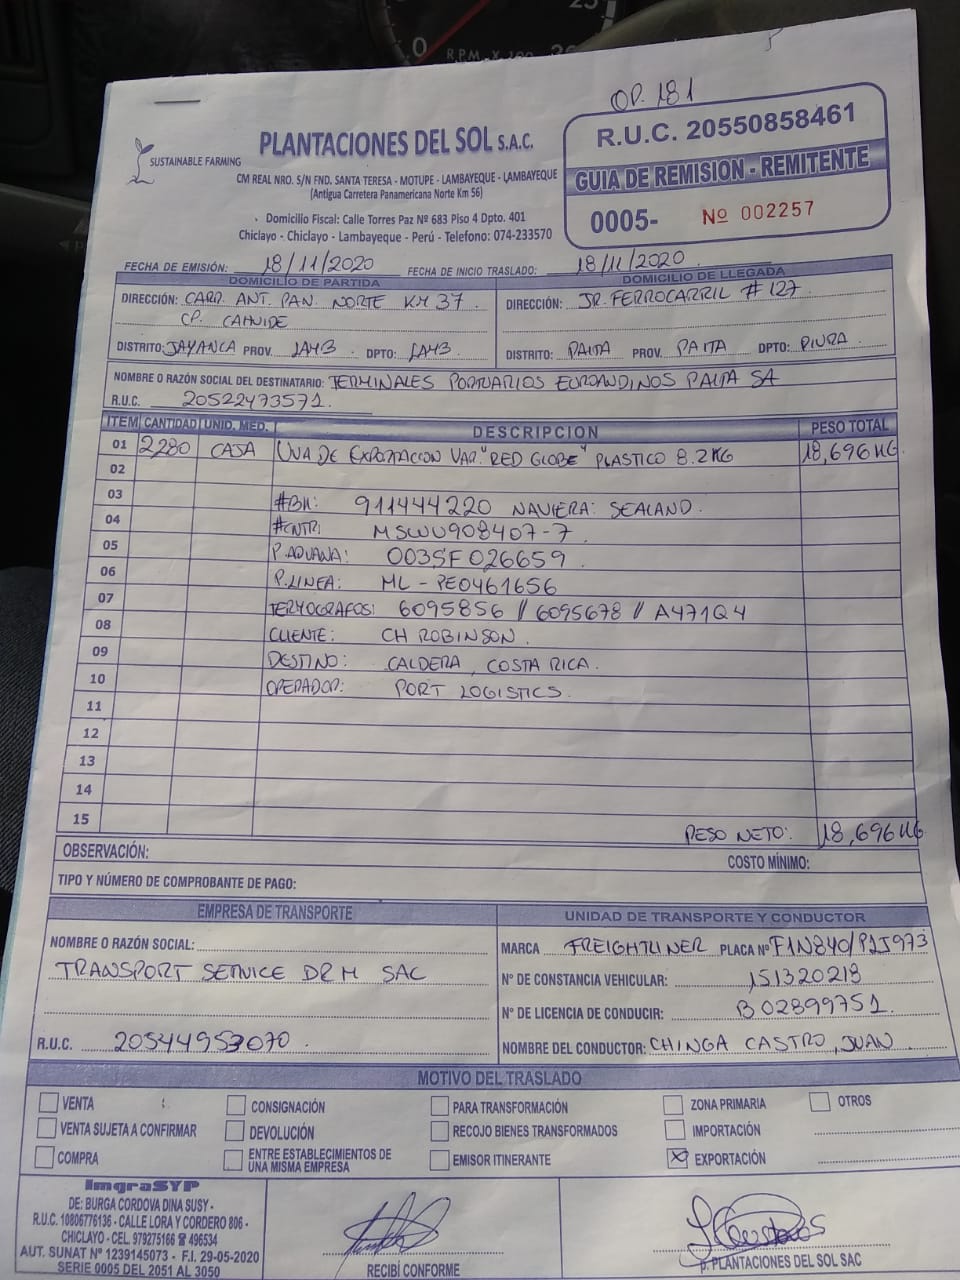 0 R.P.M. X 100 25
OP. 181
SUSTAINABLE FARMING
PLANTACIONES DEL SOL S.A.C.
CM REAL NRO. S/N FND. SANTA TERESA - MOTUPE - LAMBAYEQUE - LAMBAYEQUE
(Antigua Carretera Panamericana Norte Km 56)
Domicilio Fiscal: Calle Torres Paz Nº 683 Piso 4 Dpto. 401
Chiclayo - Chiclayo - Lambayeque - Perú - Telefono: 074-233570
R.U.C. 20550858461
GUIA DE REMISION - REMITENTE
0005- Nº 002257
FECHA DE EMISIÓN: 18/11/2020 FECHA DE INICIO TRASLADO: 18/11/2020
DOMICILIO DE PARTIDA
DIRECCIÓN: CARR. ANT. PAN. NORTE KM 37
CP. CAHUIDE
DISTRITO: JAYANCA PROV. LAMB. DPTO: LAMB.
DOMICILIO DE LLEGADA
DIRECCIÓN: JR. FERROCARRIL # 127
DISTRITO: PAITA PROV. PAITA DPTO: PIURA
NOMBRE O RAZÓN SOCIAL DEL DESTINATARIO: TERMINALES PORTUARIOS EUROANDINOS PAITA SA
R.U.C. 20522473571
ITEM CANTIDAD UNID. MED. DESCRIPCION PESO TOTAL
01 2,280 CAJA UVA DE EXPORTACION VAR. "RED GLOBE" PLASTICO 8.2KG 18,696 KG
02
03 #BK: 911444220 NAVIERA: SEALAND.
04 #CNTR: MSWU908407-7
05 P.ADUANA: 0035F026659
06 P.LINEA: ML-PE0461656
07 TERMOGRAFOS: 6095856 // 6095678 // A471Q4
08 CLIENTE: CH ROBINSON.
09 DESTINO: CALDERA, COSTA RICA.
10 OPERADOR: PORT LOGISTICS.
11
12
13
14
15 PESO NETO: 18,696 KG
OBSERVACIÓN: COSTO MÍNIMO:
TIPO Y NÚMERO DE COMPROBANTE DE PAGO:
EMPRESA DE TRANSPORTE
NOMBRE O RAZÓN SOCIAL:
TRANSPORT SERVICE DRM SAC
R.U.C. 20544953070
UNIDAD DE TRANSPORTE Y CONDUCTOR
MARCA FREIGHTLINER PLACA Nº F1N840/P1J973
N° DE CONSTANCIA VEHICULAR: 151320218
N° DE LICENCIA DE CONDUCIR: B02899751
NOMBRE DEL CONDUCTOR: CHINGA CASTRO, JUAN
MOTIVO DEL TRASLADO
VENTA CONSIGNACIÓN PARA TRANSFORMACIÓN ZONA PRIMARIA OTROS
VENTA SUJETA A CONFIRMAR DEVOLUCIÓN RECOJO BIENES TRANSFORMADOS IMPORTACIÓN
COMPRA ENTRE ESTABLECIMIENTOS DE UNA MISMA EMPRESA EMISOR ITINERANTE X EXPORTACIÓN
ImgraSYP
DE: BURGA CORDOVA DINA SUSY -
R.U.C. 10806776136 - CALLE LORA Y CORDERO 806 -
CHICLAYO - CEL. 979275166 ☎ 496534
AUT. SUNAT N° 1239145073 - F.I. 29-05-2020
SERIE 0005 DEL 2051 AL 3050
RECIBÍ CONFORME
p. PLANTACIONES DEL SOL SAC